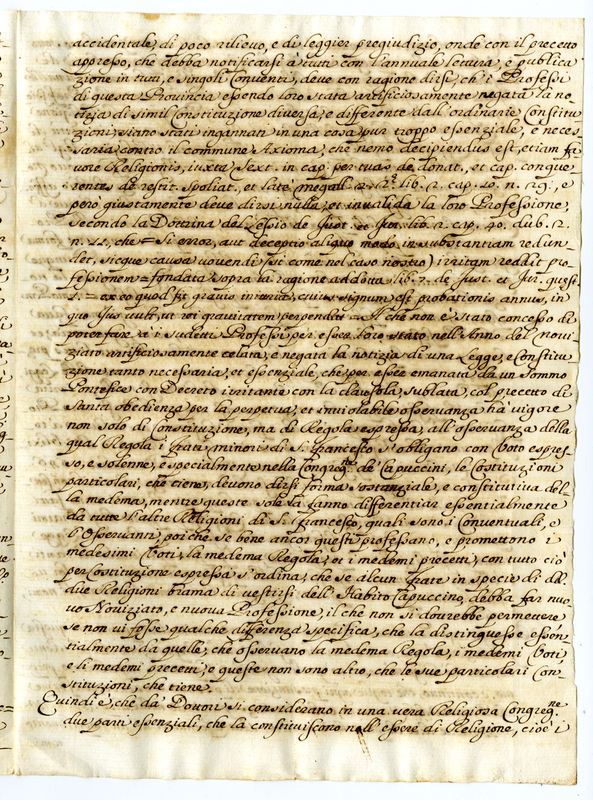 accidentale, di poco rilievo, e di leggier pregiudizio, onde con il precetto
appresso, che debba notificarsi à tutti con l'annuale lettura, e publica
zione in tutti, e singoli Conventi, deve con ragione dirsi, ch'i Professi
di questa Provincia essendo loro stata artificiosamente negata la no
tizia di simil Constituzione diversa, e differente dall'ordinarie Constitu
zioni, siano stati ingannati in una cosa pur troppo essenziale, e neces
saria contro il commune Axioma, che nemo decipiendus est, etiam fa
vore Religionis, iuxta Text. in cap. per tuas de donat., et cap. conque
rentes de restit. Spoliat, et late lib. 2. cap. 10. n. 29., e
però giustamente deve dirsi nulla, et invalida la loro Professione,
secondo la Dottrina del Lessio de Just. et Jur. lib. 2. cap. 40. dub. 2.
n. 11, che = Si error, aut deceptio aliquo modo in substantiam redun
det, sicque causa vovendi (sì come nel caso nostro) irritam reddit pro-
fessionem = fondata sopra la ragione addotta lib. 2. de Just. et Jur. quest
1. = ex eo quod fit gravis iniuria, cuius signum est probationis annus, in
quo Jus vult, ut rei gravitatem perpendat = Il che non è stato concesso di
poter fare à i sudetti Professi per esser loro stato nell'Anno del Novi
ziato artificiosamente celata, e negata la notizia di una Legge, e Constitu
zione tanto necessaria, et essenziale, che per esser emanata da un Sommo
Pontefice con Decreto irritante con la clausola, sublata, col precetto di
Santa obedienza per la perpetua, et inviolabile osservanza hà vigore
non solo di Constituzione, ma di Regola espressa, all'osservanza della
qual Regola i frati minori di S. Francesco s'obligano con Voto espres
so, e solenne, e specialmente nella Congreg.ne de Capuccini, le Costituzioni
particolari, che tiene, devono dirsi forma sostanziale, e constitutiva del-
la medema, mentre queste sole la fanno differentiar essentialmente
da tutte l'altre Religioni di S. Francesco, quali sono i Conventuali, e
l'Osservanti, poiche se bene ancor questi professano, e promettono i
medesimi Voti, la medema Regola, et i medemi precetti, con tutto ciò
per Costituzione espressa s'ordina, che se alcun frate in specie di d.e
due Religioni brama di vestirsi dell'Habito Capuccino, debba far nuo
vo Noviziato, e nuova Professione, il che non si dovrebbe permettere,
se non vi fosse qualche differenza specifica, che la distinguesse essen
tialmente da quelle, che osservano la medema Regola, i medemi Voti
e li medemi precetti, e queste non sono altro, che le sue particolari Con
stituzioni, che tiene.
Quindi è, che da' Dottori si considerano in una vera Religiosa Congreg.ne
due parti essenziali, che la constituiscono nell'essere di Religione, cioè i